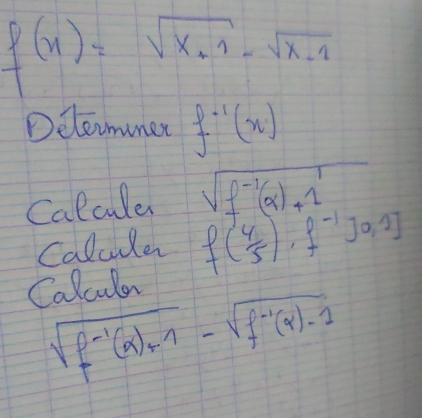 f(x) = √(x+1) - √(x-1)
Déterminer f⁻¹(x)
Calculer √(f⁻¹(α)+1)
Calculer f(4/5), f⁻¹ ]0,1]
Calculer
√(f⁻¹(α)+1) - √(f⁻¹(α)-1)